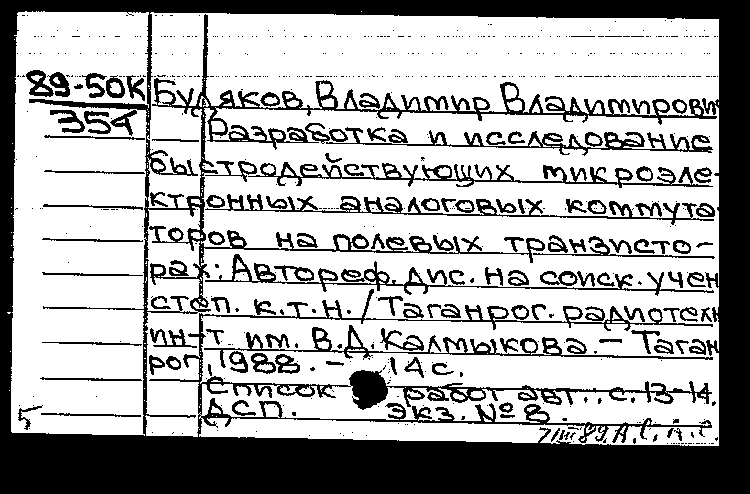 89-50К
354
Будяков, Владимир Владимирович
Разработка и исследование
быстродействующих микроэле-
ктронных аналоговых коммута-
торов на полевых транзисто-
рах: Автореф. дис. на соиск. учен
степ. к.т.н. / Таганрог. радиотехн
ин-т им. В.Д. Калмыкова. – Таган
рог, 1988. – 14 с.
Список работ авт.: с. 13-14.
ДСП. Экз. № 8.
5
7/III 89. А.С. А.С.